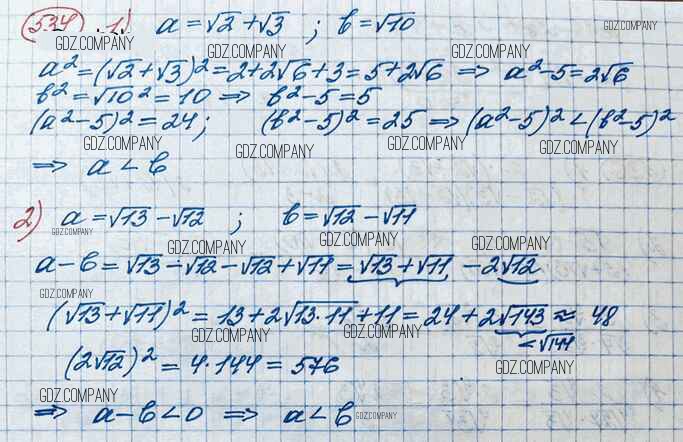 534 . 1) a = √2 + √3 ; b = √10
GDZ.COMPANY GDZ.COMPANY GDZ.COMPANY GDZ.COMPANY
a² = (√2 + √3)² = 2 + 2√6 + 3 = 5 + 2√6 => a² - 5 = 2√6
b² = √10² = 10 => b² - 5 = 5
GDZ.COMPANY GDZ.COMPANY GDZ.COMPANY
(a² - 5)² = 24; (b² - 5)² = 25 => (a² - 5)² < (b² - 5)²
GDZ.COMPANY GDZ.COMPANY GDZ.COMPANY GDZ.COMPANY
=> a < b
2) a = √13 - √12 ; b = √12 - √11
GDZ.COMPANY GDZ.COMPANY GDZ.COMPANY GDZ.COMPANY
a - b = √13 - √12 - √12 + √11 = √13 + √11 - 2√12
GDZ.COMPANY
(√13 + √11)² = 13 + 2√13·11 + 11 = 24 + 2√143 ≈ 48
< √144
GDZ.COMPANY GDZ.COMPANY
(2√12)² = 4·144 = 576
GDZ.COMPANY GDZ.COMPANY GDZ.COMPANY
=> a - b < 0 => a < b
GDZ.COMPANY